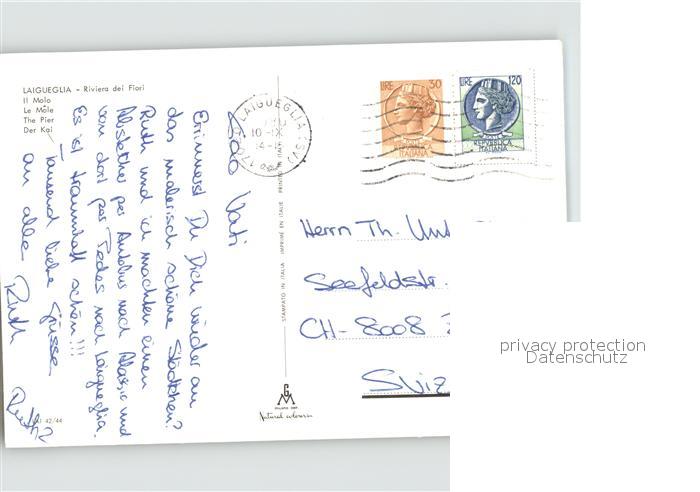 LAIGUEGLIA - Riviera dei Fiori
Il Molo
Le Môle
The Pier
Der Kai
Liebe Vati
Erinnerst Du Dich wieder an
das malerisch schöne Städtchen?
Ruth und ich machten einen
Abstecher per Autobus nach Alassio und
von dort per Pedes nach Laigueglia.
Es ist traumhaft schön!!!
Tausend liebe Grüsse
an alle Ruth
STAMPATO IN ITALIA IMPRIMÉ EN ITALIE PRINTED IN ITALY
LAIGUEGLIA (SV)
LIRE 30
POSTE
REPVBBLICA
ITALIANA
LIRE 120
POSTE
REPVBBLICA
ITALIANA
Herrn Th.
Seefeldstr.
CH-8008
Sviz
GM
Natural colour
42/44
privacy protection
Datenschutz